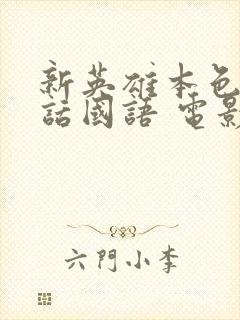 新英雄本色
話國語 電影
六門小李